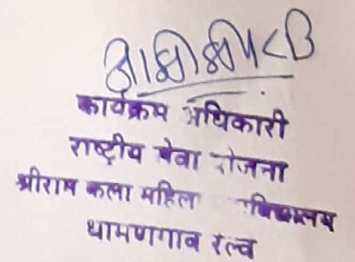 कार्यक्रम अधिकारी
राष्ट्रीय सेवा योजना
श्रीराम कला महिला विद्यालय
धामणगाव रेल्वे